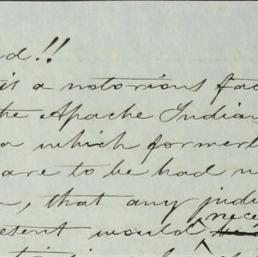 d!!
is a notorious fac
he Apache Indian
a which former
are to be had
that any judi
nece
esent would